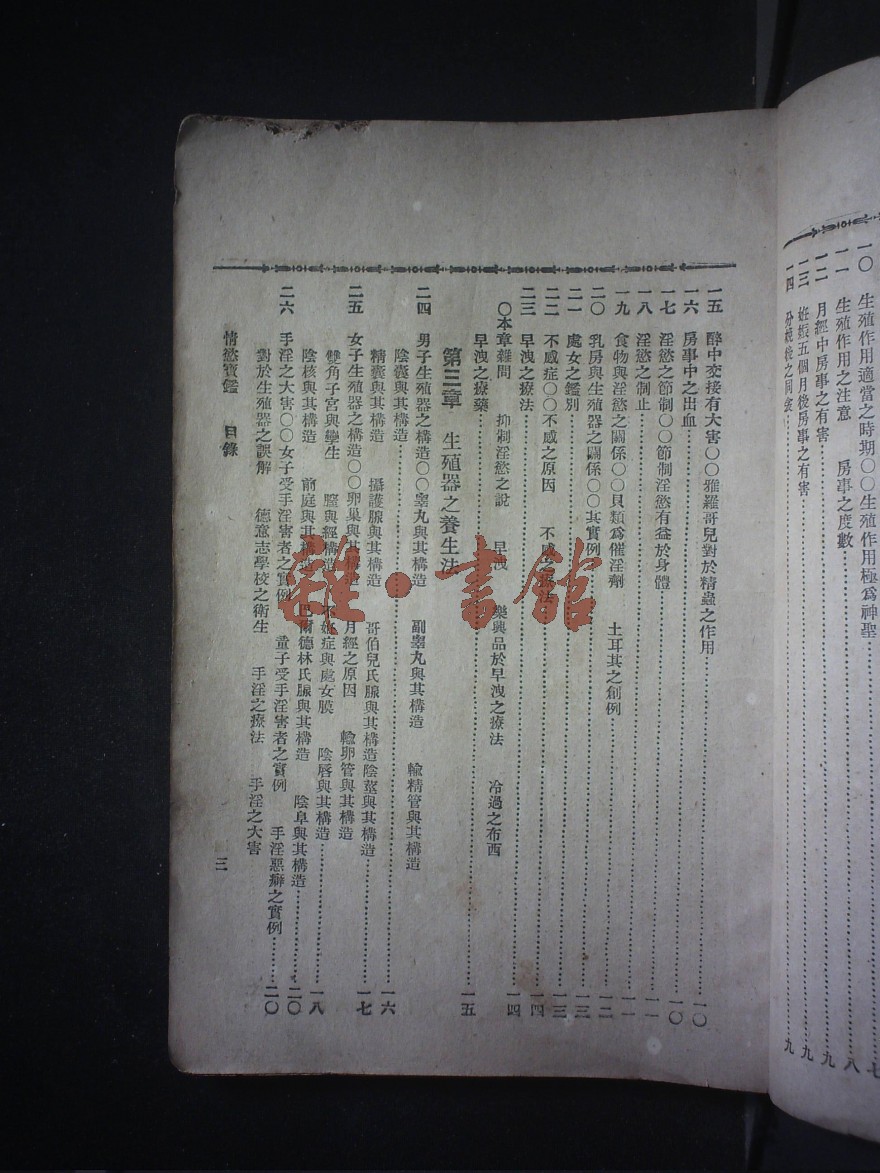 一〇 生殖作用適當之時期〇〇生殖作用極爲神聖……七
一一 生殖作用之注意 房事之度數……八
一二 月經中房事之有害……九
一三 妊娠五個月後房事之有害……九
一四 分娩後之房……九
一五 醉中交接有大害〇〇雅羅哥兒對於精蟲之作用……一〇
一六 房事中之出血……一〇
一七 淫慾之節制〇〇節制淫慾有益於身體……一一
一八 淫慾之制止……一一
一九 食物與淫慾之關係〇〇貝類爲催淫劑 土耳其之創例……一二
二〇 乳房與生殖器之關係〇〇其實例……一三
二一 處女之鑑別……一三
二二 不感症〇〇不感之原因 不感之療法……一四
二三 早洩之療法……一四
〇本章雜問 抑制淫慾之說 早洩 樂興品於早洩之療法 冷過之布西
早洩之療藥……一五
第三章 生殖器之養生法
二四 男子生殖器之構造〇〇睾丸與其構造 副睾丸與其構造 輸精管與其構造
陰囊與其構造……一六
精囊與其構造 攝護腺與其構造 哥伯兒氏腺與其構造陰莖與其構造……一七
二五 女子生殖器之構造〇〇卵巢與其構造 月經之原因 輸卵管與其構造
雙角子宮與孿生 膣與經構造 不妊症與處女膜 陰唇與其構造……一八
陰核與其構造 前庭與其構造 巴爾德林氏腺與其構造 陰阜與其構造……二〇
二六 手淫之大害〇〇女子受手淫害者之實例 童子受手淫害者之實例 手淫惡癖之實例……二〇
對於生殖器之誤解 德意志學校之衛生 手淫之療法 手淫之大害
情慾寶鑑 目錄 三
雜·書館